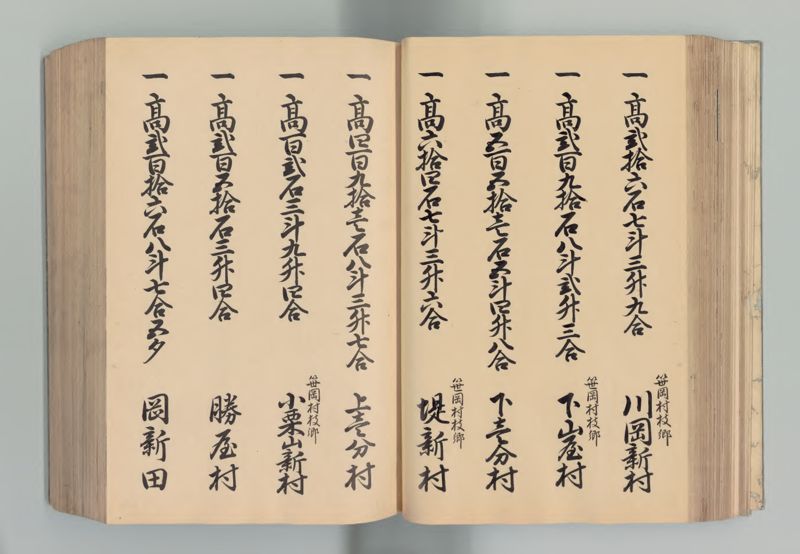 一 高弐拾六石七斗三升九合 笹岡村枝郷 川岡新村
一 高弐百九拾石八斗弐升三合 笹岡村枝郷 下山屋村
一 高五百五拾壱石五斗四升八合 下壱分村
一 高六拾四石七斗三升六合 笹岡村枝郷 堤新村
一 高四百九拾壱石八斗三升七合 上壱分村
一 高百弐石三斗九升四合 笹岡村枝郷 小栗山新村
一 高弐百五拾石三升四合 勝屋村
一 高弐百拾六石八斗七合五夕 岡新田